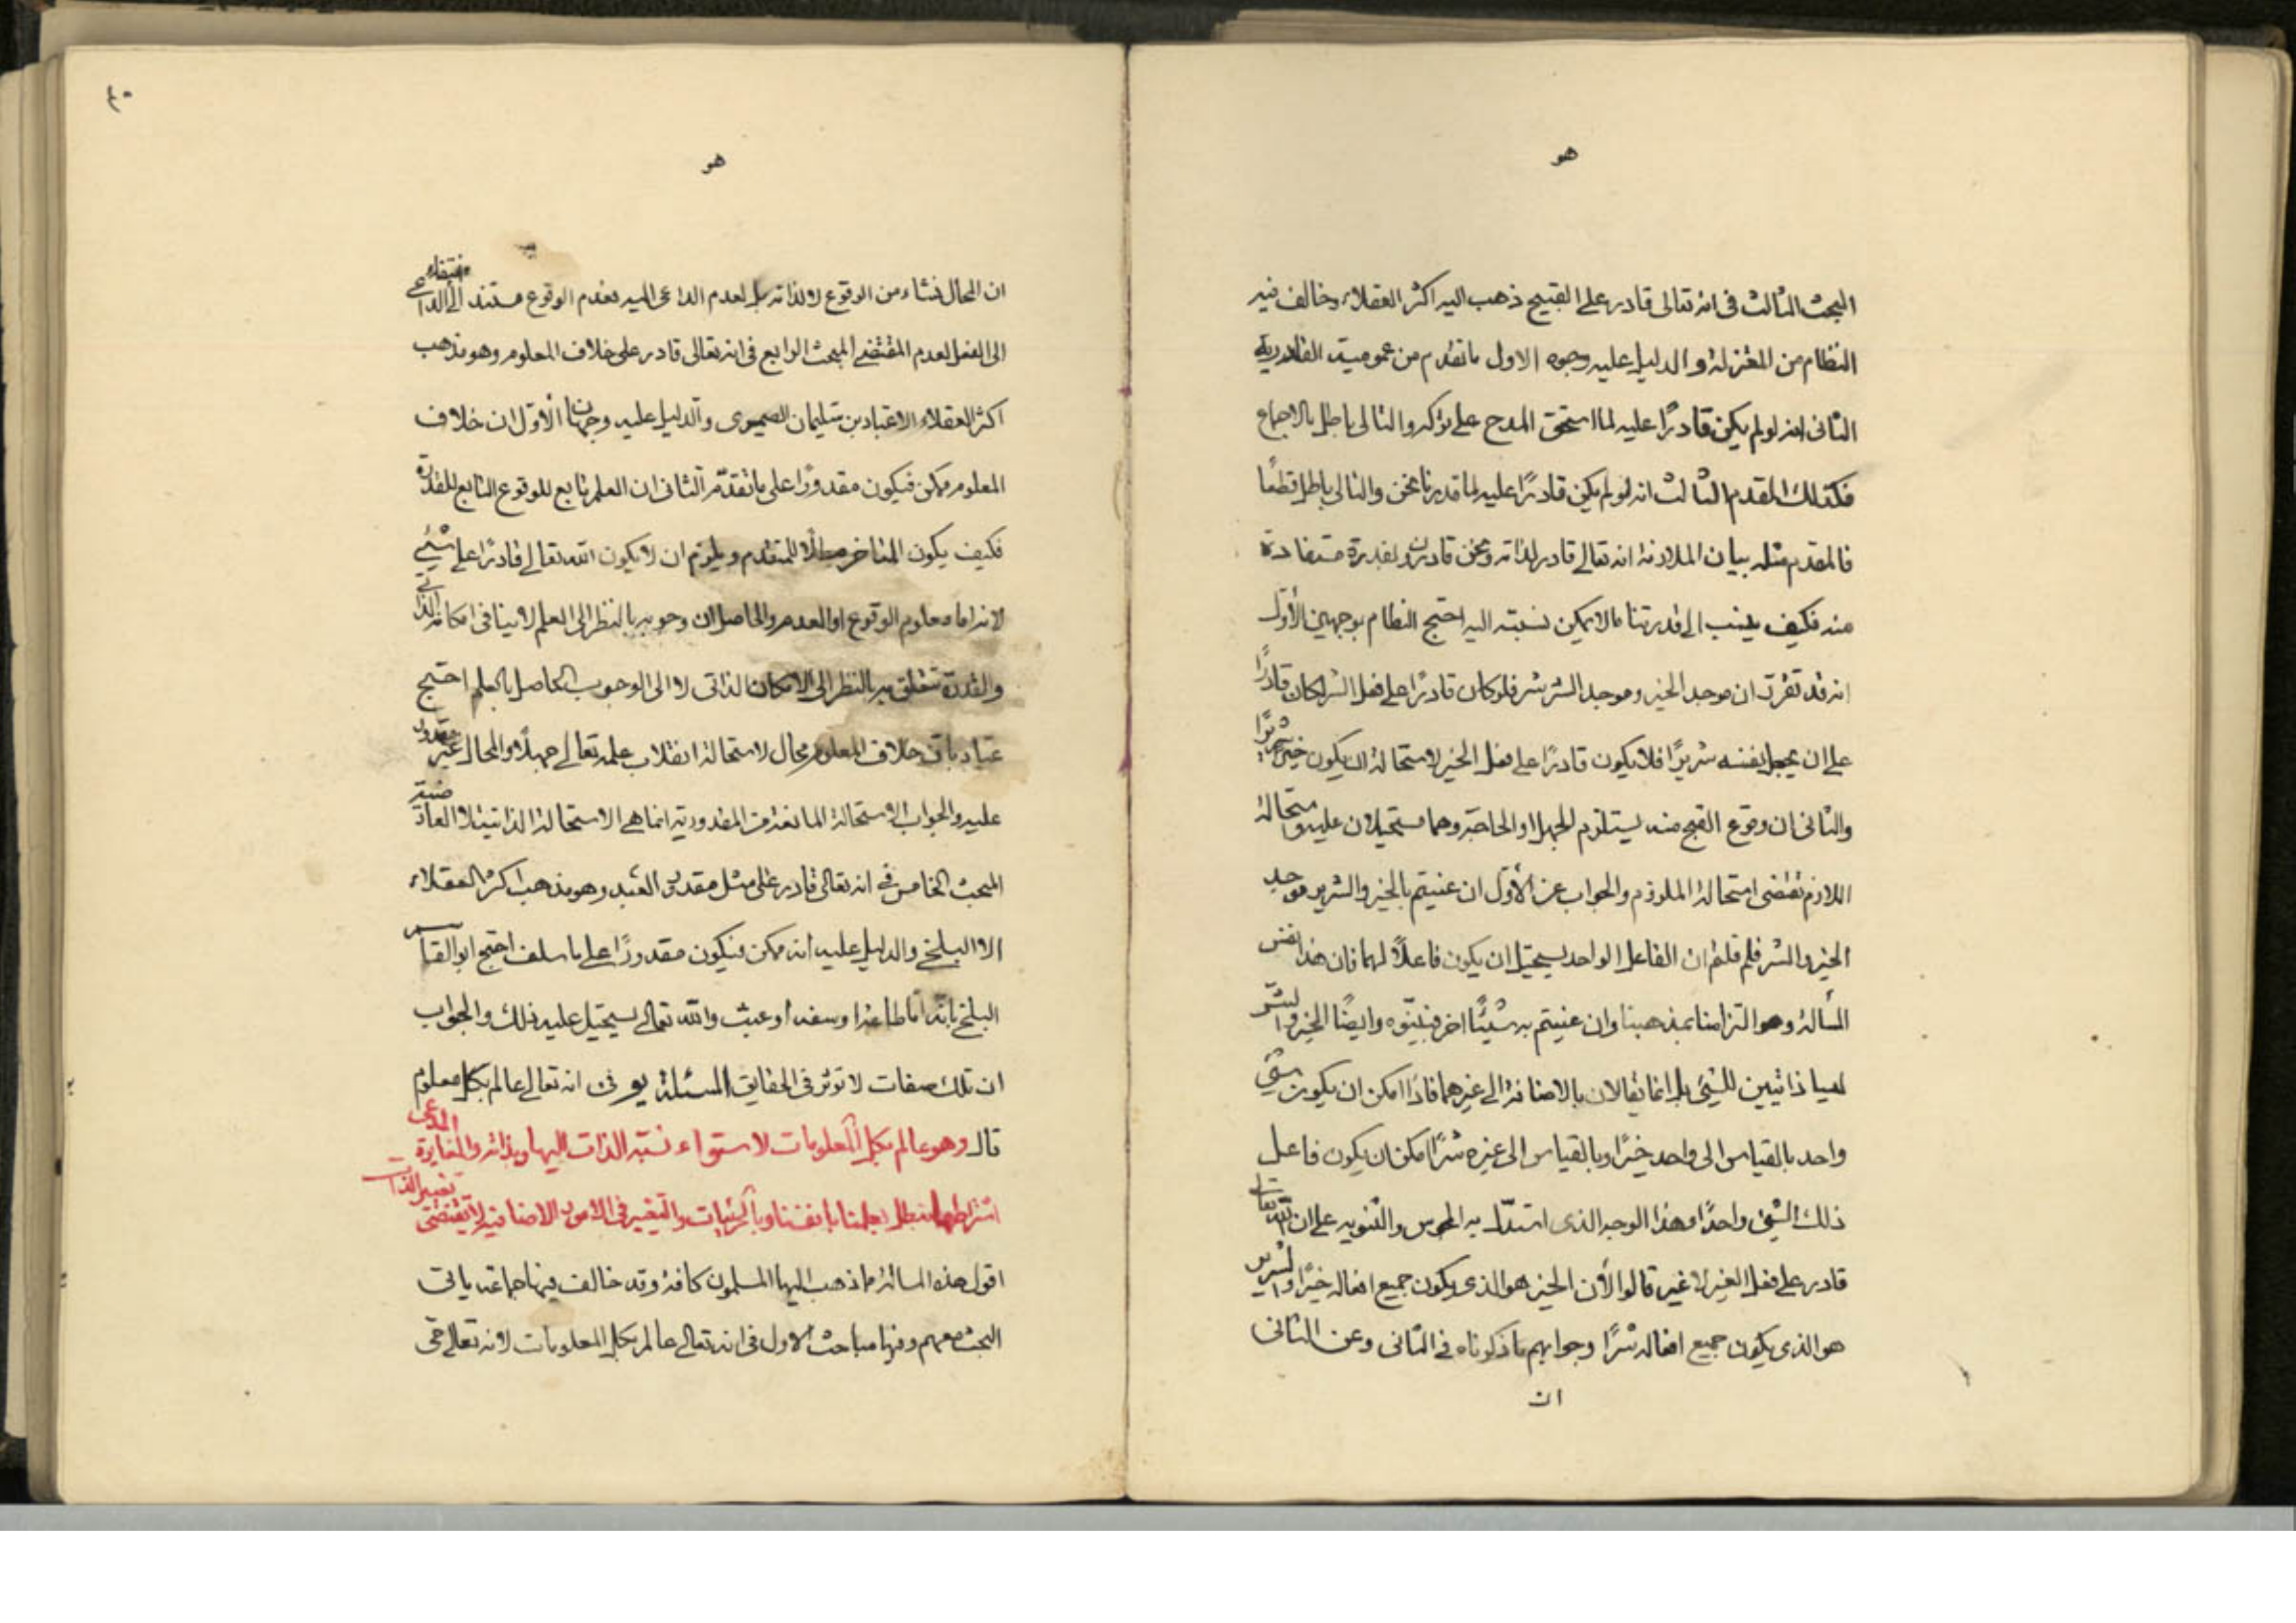 هو
البحث الثالث فى انه تعالى قادر على القبيح ذهب اليه اكثر العقلاء وخالف فيه
النظام من المعتزلة و الدليل عليه وجوه الاول ما تقدم من عمومية القادرية
الثانى انه لو لم يكن قادرًا عليه لما استحق المدح على تركه والتالى باطل بالاجماع
فكذلك المقدم الثالث انه لو لم يكن قادرًا عليه لما قدرنا نحن والتالى باطل قطعًا
فالمقدم مثله بيان الملازمة انه تعالى قادر لذاته ونحن قادرون بقدرة مستفادة
منه فكيف ينسب الى قدرتنا ما لا يمكن نسبته اليه احتج النظام بوجهين الأول
انه قد تقرر ان موجد الخير و موجد الشر شر فلو كان قادرًا على فعل الشر لكان قادرًا
على ان يجعل نفسه شريرًا فلا يكون قادرًا على فعل الخير لاستحالة ان يكون خيرًا شريرًا
والثانى ان وقوع القبح منه يستلزم الجهل او الحاجة وهما مستحيلان عليه واستحالة
اللازم تقتضى استحالة الملزوم والجواب عن الأول ان عنيتم بالخير والشرير موجد
الخير والشر فلم قلتم ان الفاعل الواحد يستحيل ان يكون فاعلًا لهما فان هذا نفس
المسألة وهو التزامنا بمذهبنا وان عنيتم به شيئًا اخر فبيّنوه وايضًا الخير والشر
ليسا ذاتيين للشيئ بل انما يقالان بالاضافة الى غيرهما فاذًا امكن ان يكون شيئ
واحد بالقياس الى واحد خيرًا وبالقياس الى غيره شرًا امكن ان يكون فاعل
ذلك الشيئ واحدًا وهذا الوجه الذى استدلّ به المجوس والثنويه على ان الله تعالى
قادر على فعل الخير لا غير قالوا لأن الخير هو الذى يكون جميع افعاله خيرًا والشرير
هو الذى يكون جميع افعاله شرًا وجوابهم ما ذكرناه فى الثانى وعن الثانى
ان
هو
ان المحال نشاء من الوقوع لا لذاته بل لعدم الداعى اليه فعدم الوقوع مستند الى انتفاء الداعى
الى الفعل لعدم المقتضى المبحث الرابع فى انه تعالى قادر على خلاف المعلوم وهو مذهب
اكثر العقلاء الا عباد بن سليمان الصيمرى والدليل عليه وجهان الأول ان خلاف
المعلوم ممكن فيكون مقدورًا على ما تقدّم الثانى ان العلم تابع للوقوع التابع للقدرة
فكيف يكون المتاخر مبطلًا للمتقدم و يلزم ان لا يكون الله تعالى قادرًا على شيئ
لانه اما معلوم الوقوع او العدم والحاصل ان وجوبه بالنظر الى العلم لا ينافى امكانه الذاتى
والقدرة تتعلق به بالنظر الى الامكان الذاتى لا الى الوجوب الحاصل بالعلم احتج
عباد بان خلاف المعلوم محال لاستحالة انقلاب علمه تعالى جهلًا والمحال غير مقدور
عليه والجواب الاستحالة المانعة من المقدورية انما هى الاستحالة الذاتية لا العارضية
المبحث الخامس فى انه تعالى قادر على مثل مقدور العبد وهو مذهب اكثر العقلاء
الا البلخى والدليل عليه انه ممكن فيكون مقدورًا على ما سلف احتج ابو القاسم
البلخى بانه اما طاعة او سفه او عبث والله تعالى يستحيل عليه ذلك والجواب
ان تلك صفات لا توثر فى الحقايق المسئلة يو فى انه تعالى عالم بكل معلوم
قال وهو عالم بكل المعلومات لاستواء نسبة الذات اليها وبذاته والمغايرة المدعى
اشتراطها تبطل بعلمنا بانفسنا وبالجزئيات والتغير فى الامور الاضافية لا يقتضى تغيير الذات
اقول هذه المسالة مما ذهب اليها المسلمون كافة وقد خالف فيها جماعة ياتى
البحث معهم وفيها مباحث الاول فى انه تعالى عالم بكل المعلومات لانه تعالى حى